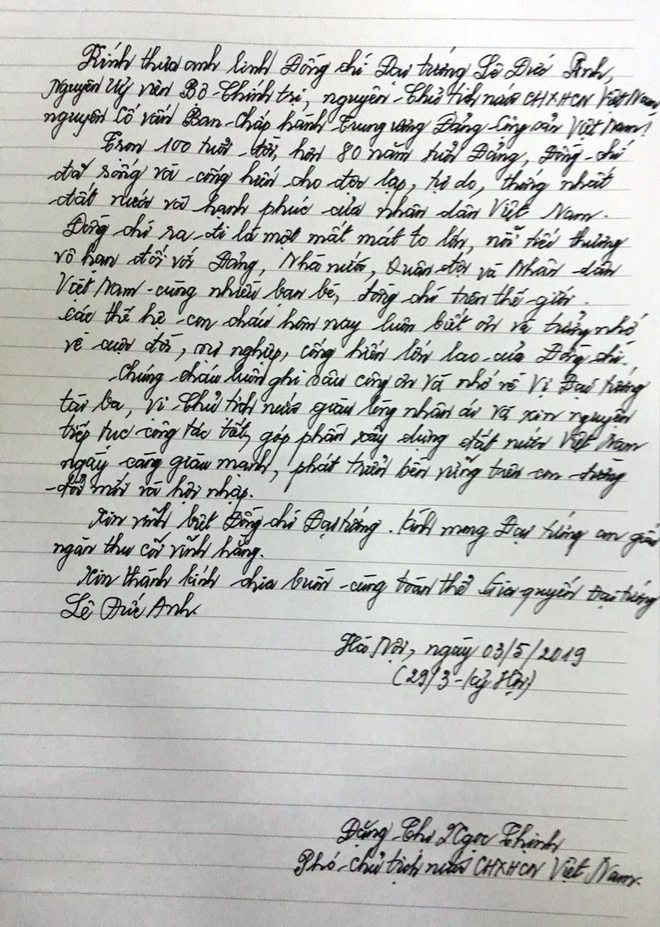 Kính thưa anh linh Đồng chí Đại tướng Lê Đức Anh,
Nguyên Uỷ viên Bộ Chính trị, nguyên Chủ tịch nước CHXHCN Việt Nam,
nguyên Cố vấn Ban Chấp hành Trung ương Đảng Cộng sản Việt Nam!
Tròn 100 tuổi đời, hơn 80 năm tuổi Đảng, Đồng chí
đã sống và cống hiến cho độc lập, tự do, thống nhất
đất nước và hạnh phúc của nhân dân Việt Nam.
Đồng chí ra đi là một mất mát to lớn, nỗi tiếc thương
vô hạn đối với Đảng, Nhà nước, Quân đội và Nhân dân
Việt Nam cùng nhiều bạn bè, đồng chí trên thế giới.
Các thế hệ con cháu hôm nay luôn biết ơn và tưởng nhớ
về cuộc đời, sự nghiệp, cống hiến lớn lao của Đồng chí.
Chúng cháu luôn ghi sâu công ơn và nhớ về Vị Đại tướng
tài ba, vị Chủ tịch nước giàu lòng nhân ái và xin nguyện
tiếp tục công tác tốt, góp phần xây dựng đất nước Việt Nam
ngày càng giàu mạnh, phát triển bền vững trên con đường
đổi mới và hội nhập.
Xin vĩnh biệt Đồng chí Đại tướng. Kính mong Đại tướng an giấc
ngàn thu cõi vĩnh hằng.
Xin thành kính chia buồn cùng toàn thể Gia quyến Đại tướng
Lê Đức Anh.
Hà Nội, ngày 03/5/2019
(29/3 - Kỷ Hợi)
Đặng Thị Ngọc Thịnh
Phó Chủ tịch nước CHXHCN Việt Nam.